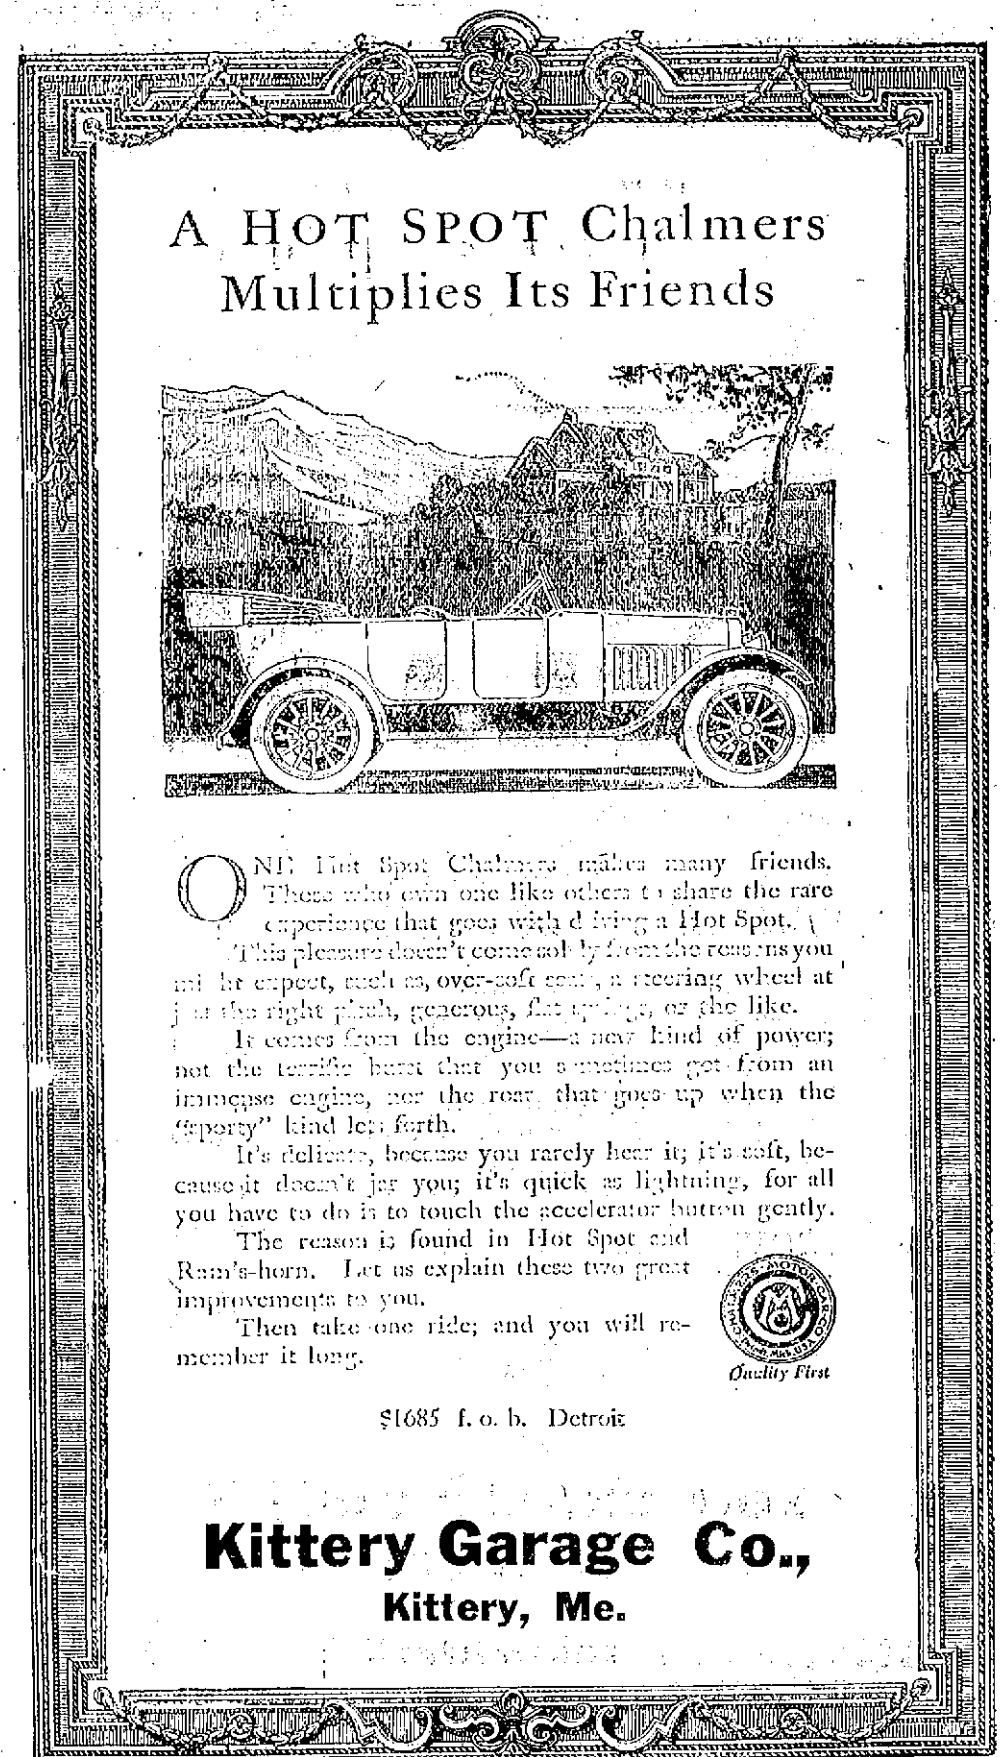 A HOT SPOT Chalmers
Multiplies Its Friends
ONE Hot Spot Chalmers makes many friends.
Those who own one like others to share the rare
experience that goes with driving a Hot Spot.
This pleasure doesn't come solely from the reasons you
might expect, such as, over-soft seats, a steering wheel at
just the right pitch, generous, flat springs, or the like.
It comes from the engine—a new kind of power;
not the terrific burst that you sometimes get from an
immense engine, nor the roar that goes up when the
"sporty" kind lets forth.
It's delicate, because you rarely hear it; it's soft, be-
cause it doesn't jar you; it's quick as lightning, for all
you have to do is to touch the accelerator button gently.
The reason is found in Hot Spot and
Ram's-horn. Let us explain these two great
improvements to you.
Then take one ride; and you will re-
member it long.
CHALMERS MOTOR CAR CO
Detroit Mich. U.S.A.
Quality First
$1685 f. o. b. Detroit
Kittery Garage Co.,
Kittery, Me.